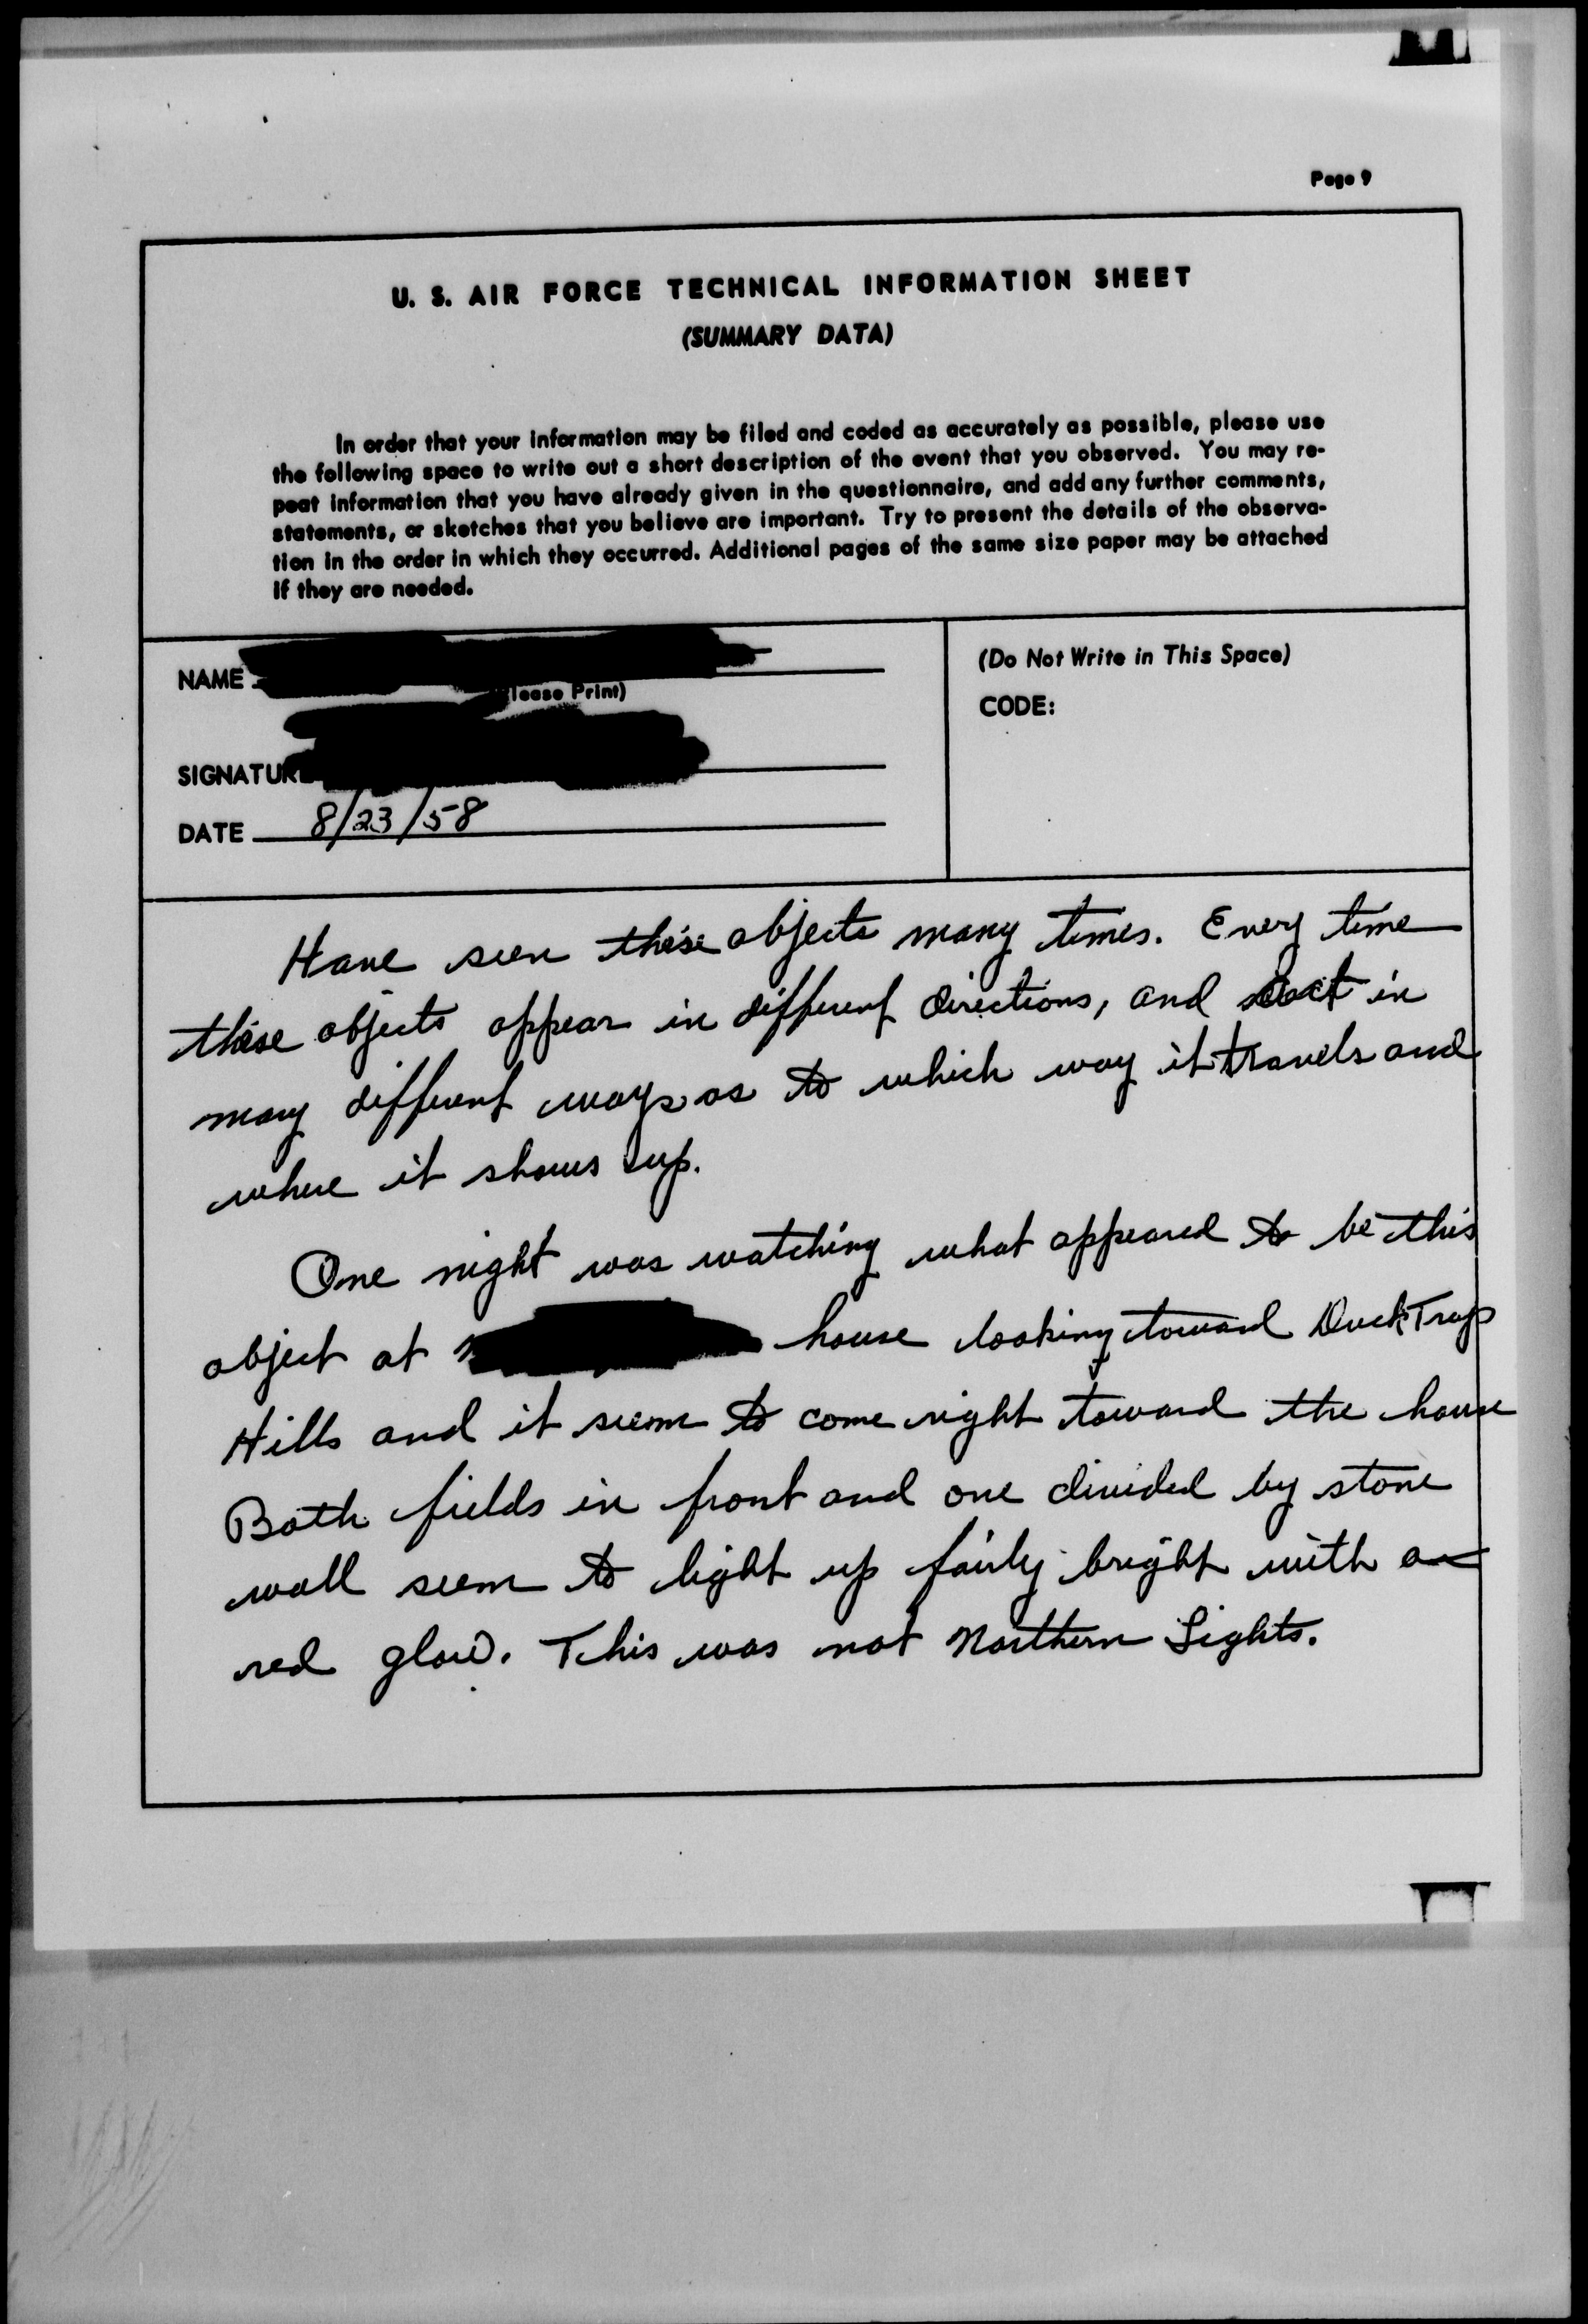 Page 9
U. S. AIR FORCE TECHNICAL INFORMATION SHEET
(SUMMARY DATA)
In order that your information may be filed and coded as accurately as possible, please use
the following space to write out a short description of the event that you observed. You may re-
peat information that you have already given in the questionnaire, and add any further comments,
statements, or sketches that you believe are important. Try to present the details of the observa-
tion in the order in which they occurred. Additional pages of the same size paper may be attached
if they are needed.
NAME
lease Print)
SIGNATURE
DATE 8/23/58
(Do Not Write in This Space)
CODE:
Have seen these objects many times. Every time
these objects appear in different directions, and act in
many different ways as to which way it travels and
where it shows up.
One night was watching what appeared to be this
object at house looking toward Duck Trap
Hills and it seem to come right toward the house
Both fields in front and one divided by stone
wall seem to light up fairly bright with a
red glow. This was not Northern Lights.